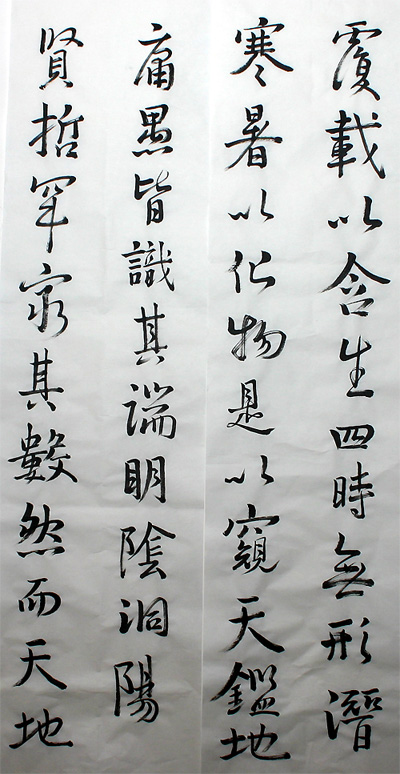 覆載以含生四時無形潛
寒暑以化物是以窺天鑑地
庸愚皆識其端明陰洞陽
賢哲罕窮其數然而天地